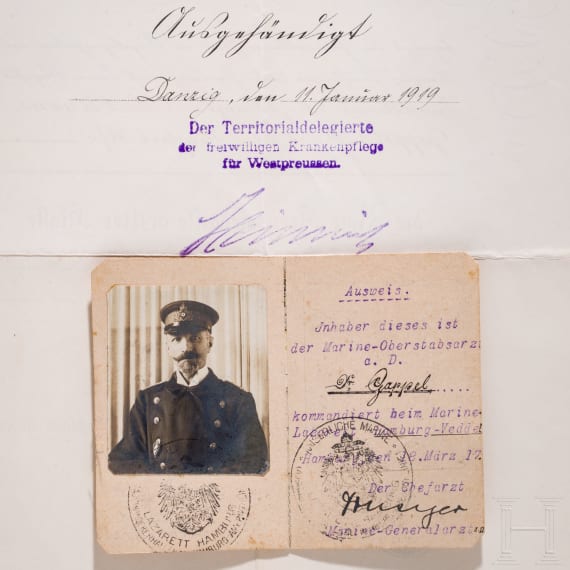 Ausgehändigt
Danzig, den 11. Januar 1919
Der Territorialdelegierte
der freiwilligen Krankenpflege
für Westpreussen.
Ausweis.
Jnhaber dieses ist
der Marine-Oberstabsarzt
a. D.
Dr Gappel
kommandiert beim Marine
Hamburg-Veddel
Hamburg den 12. März 17
Der Chefarzt
Marine-Generalarzt
LAZARETT HAMBURG
MARINE
H